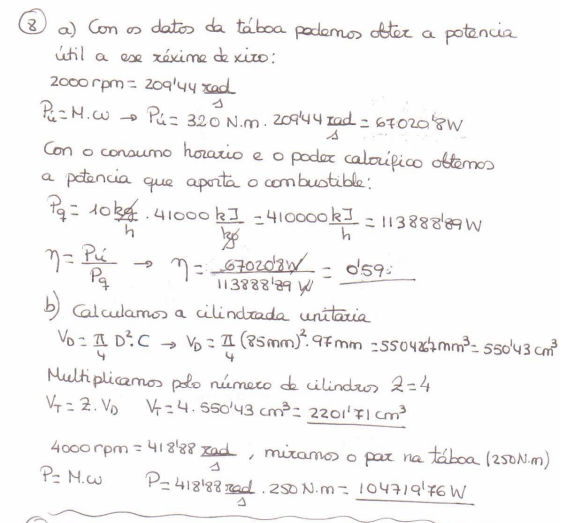 8 a) Con os datos da táboa podemos obter a potencia
útil a ese réxime de xiro:
2000 rpm = 209'44 rad/s
Pú = M.ω → Pú = 320 N.m . 209'44 rad/s = 67020'8W
Con o consumo horario e o poder calorífico obtemos
a potencia que aporta o combustible:
Pq = 10 kg/h . 41000 kJ/kg = 410000 kJ/h = 113888'89 W
η = Pú/Pq → η = 67020'8W / 113888'89 W = 0'59
b) Calculamos a cilindrada unitaria
VD = π/4 D².C → VD = π/4 (85mm)².97mm = 550427mm³ = 550'43 cm³
Multiplicamos polo número de cilindros Z=4
VT = Z.VD VT = 4.550'43 cm³ = 2201'71 cm³
4000 rpm = 418'88 rad/s , miramos o par na táboa (250N.m)
P = M.ω P = 418'88 rad/s . 250 N.m = 104719'76 W